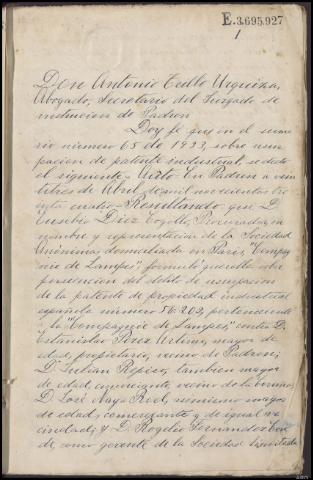 E.3.695.927
1
Don Antonio Trillo Urquiza,
Abogado, Secretario del Juzgado de
instruccion de Padron
Doy fé que en el suma
rio número 65 de 1933, sobre usur
pacion de patente industrial, se dictó
el siguiente = Auto En Padron a vein
titres de Abril de mil novecientos tre
inta cuatro = Resultando que D.
Eusebio Diez Cogollo, Procurador, en
nombre y representación de la Sociedad
Anónima domiciliada en Paris, "Compag
nie de Lampes", formuló querella sobre
persecucion del delito de usurpacion
de la patente de propiedad industrial
española número 56.202, perteneciente
a la "Compagnie de Lampes", contra D.
Estanislao Pérez Artime, mayor de
edad, propietario, vecino de Padron;
D. Julian Repiso, tambien mayor
de edad, comerciante, vecino de la
D. José Naya Rod, asimismo mayor
de edad, comerciante y de igual ve
cindad; y D. Rogelio Fernandez Con
de como gerente de la Sociedad limitada